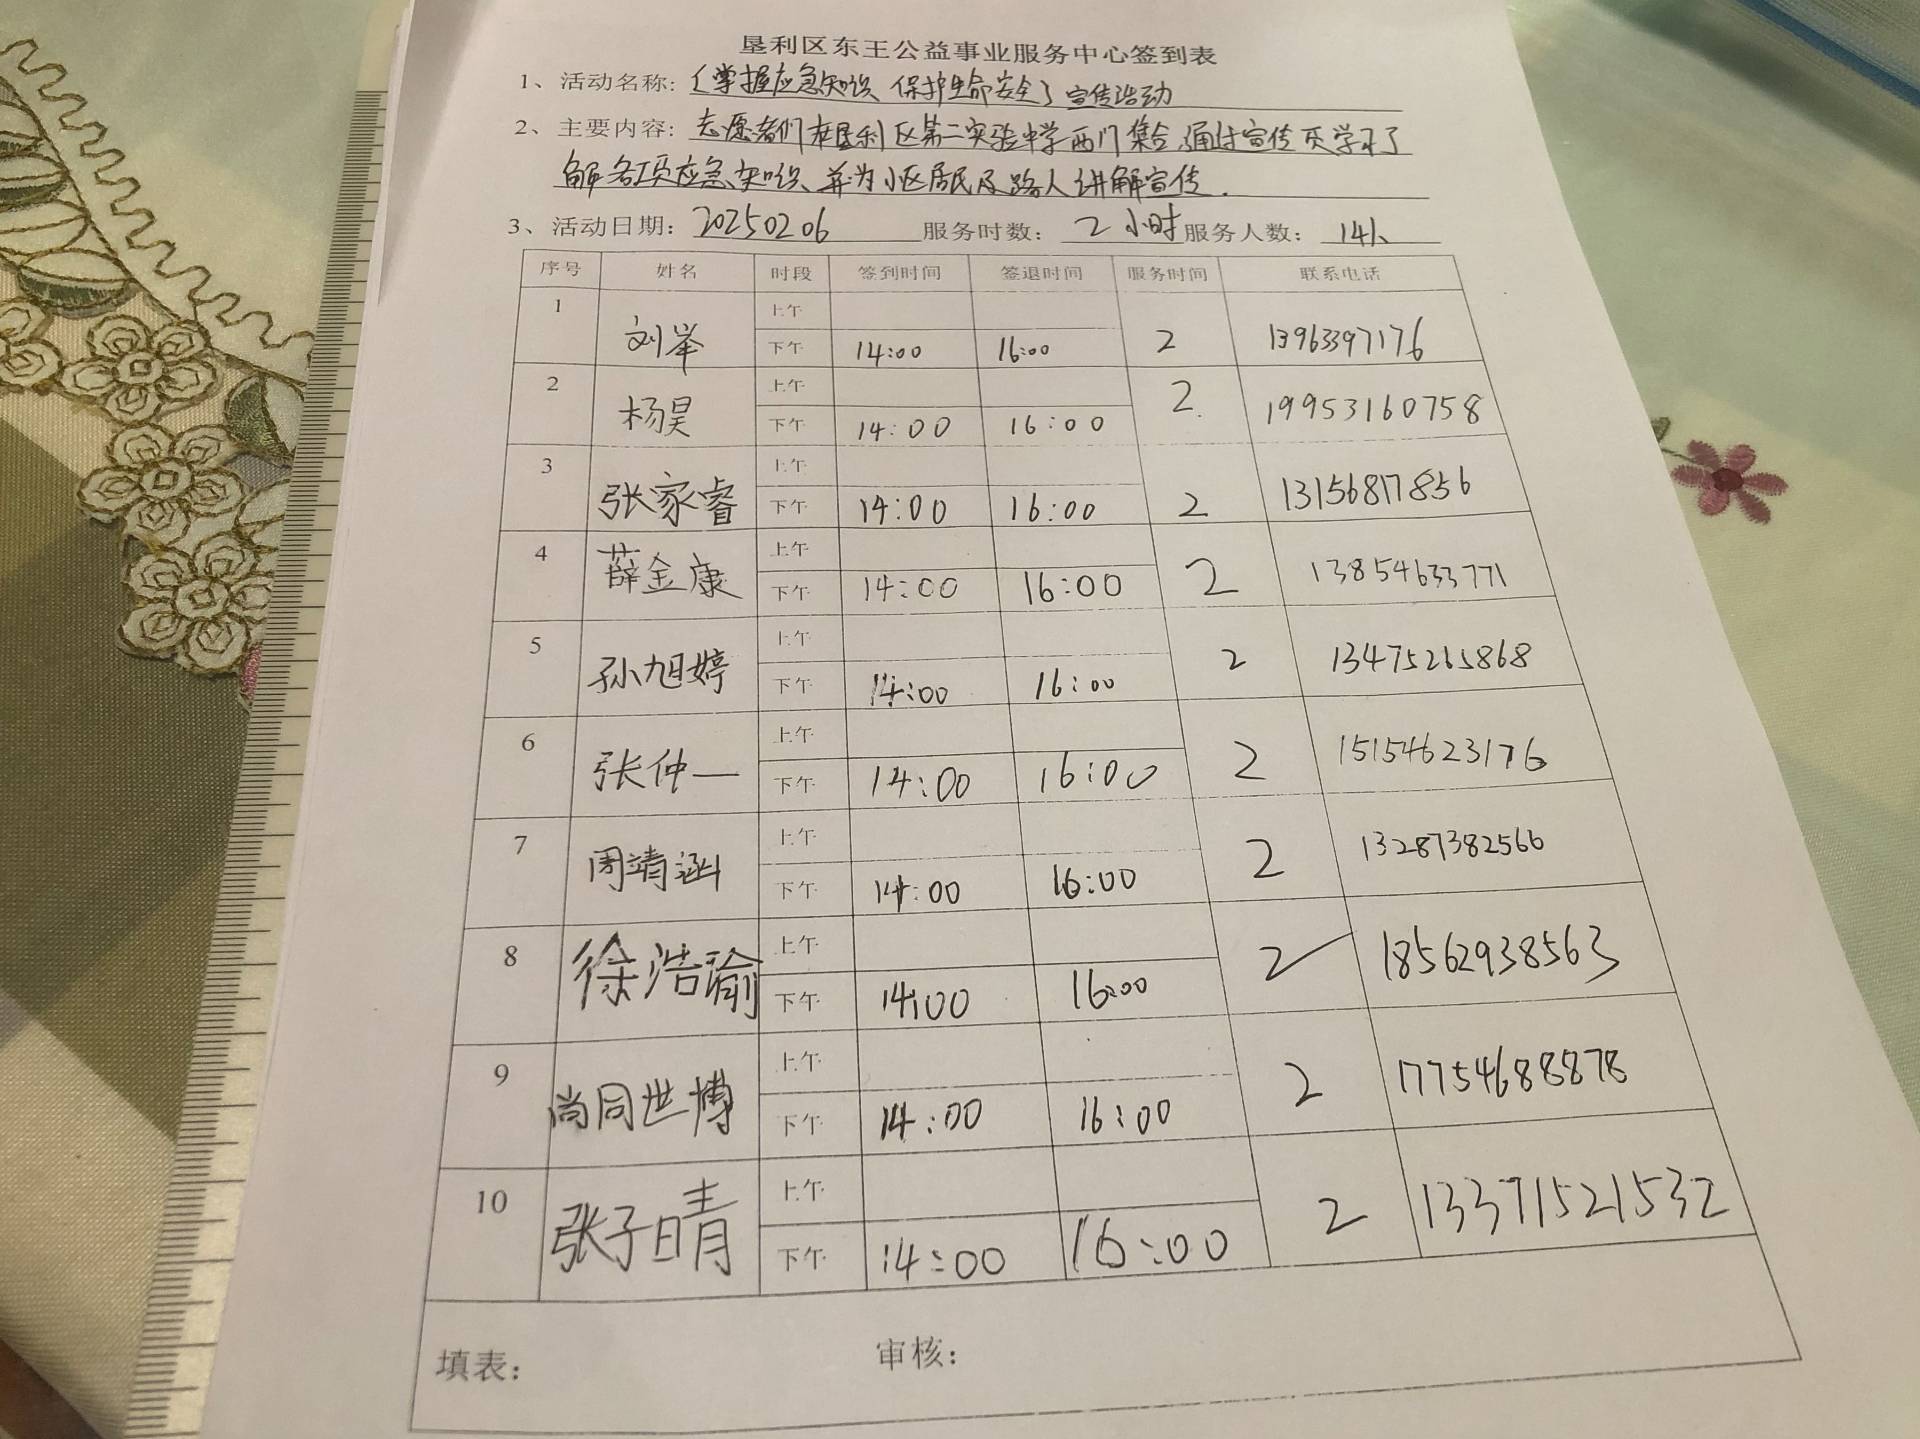 垦利区东王公益事业服务中心签到表
1、活动名称：《掌握应急知识、保护生命安全》宣传活动
2、主要内容：志愿者们在垦利区第二实验中学西门集合,通过宣传页学习了
解各项应急知识、并为小区居民及路人讲解宣传.
3、活动日期：20250206 服务时数：2小时 服务人数：14人
序号 姓名 时段 签到时间 签退时间 服务时间 联系电话
1 刘举 上午
下午 14:00 16:00 2 13963397176
2 杨昊 上午
下午 14:00 16:00 2. 19953160758
3 张家睿 上午
下午 14:00 16:00 2 13156817856
4 薛金康 上午
下午 14:00 16:00 2 13854633771
5 孙旭婷 上午
下午 14:00 16:00 2 13475265868
6 张仲一 上午
下午 14:00 16:00 2 15154623176
7 周靖涵 上午
下午 14:00 16:00 2 13287382566
8 徐浩瑜 上午
下午 14:00 16:00 2 18562938563
9 尚同世博 上午
下午 14:00 16:00 2 17754688878
10 张子晴 上午
下午 14:00 16:00 2 13371521532
填表： 审核：